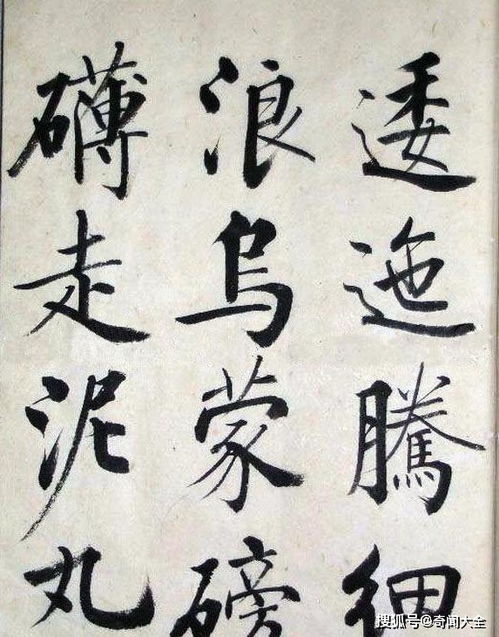 逶迤騰細
浪烏蒙磅
礴走泥丸
搜狐号@奇闻大全